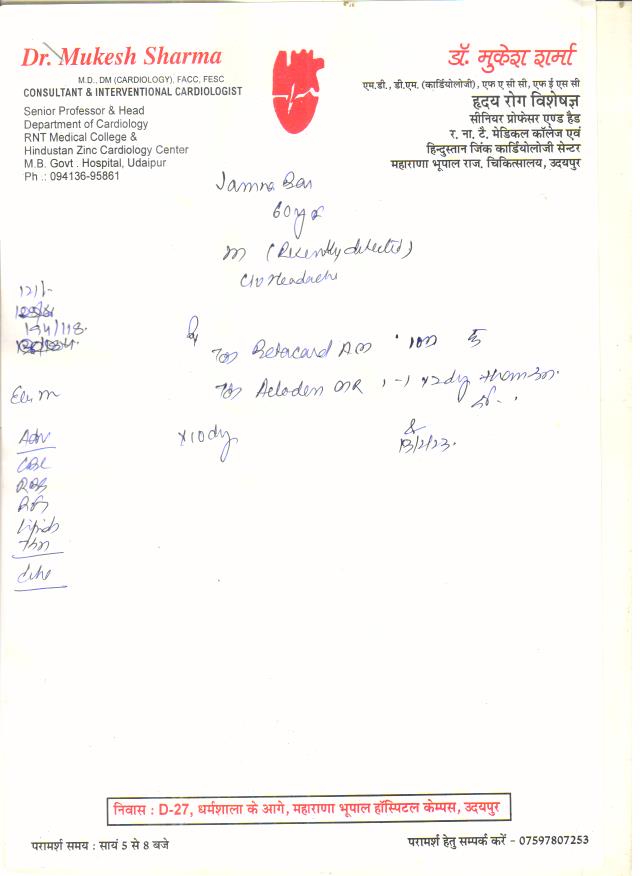 Dr. Mukesh Sharma
M.D., DM (CARDIOLOGY), FACC, FESC
CONSULTANT & INTERVENTIONAL CARDIOLOGIST
Senior Professor & Head
Department of Cardiology
RNT Medical College &
Hindustan Zinc Cardiology Center
M.B. Govt . Hospital, Udaipur
Ph .: 094136-95861
डॉ. मुकेश शर्मा
एम.डी., डी.एम. (कार्डियोलोजी), एफ ए सी सी, एफ ई एस सी
हृदय रोग विशेषज्ञ
सीनियर प्रोफेसर एण्ड हैड
र. ना. टै. मेडिकल कॉलेज एवं
हिन्दुस्तान जिंक कार्डियोलोजी सेन्टर
महाराणा भूपाल राज. चिकित्सालय, उदयपुर
Jamna Bai
60 yr
(Recently detected)
C/o Headache
194/118.
Rx
Betacard AM
x 10 dy
13/2/23.
Adv
CBC
RBS
RFT
Lipids
Echo
निवास : D-27, धर्मशाला के आगे, महाराणा भूपाल हॉस्पिटल केम्पस, उदयपुर
परामर्श समय : सायं 5 से 8 बजे
परामर्श हेतु सम्पर्क करें - 07597807253